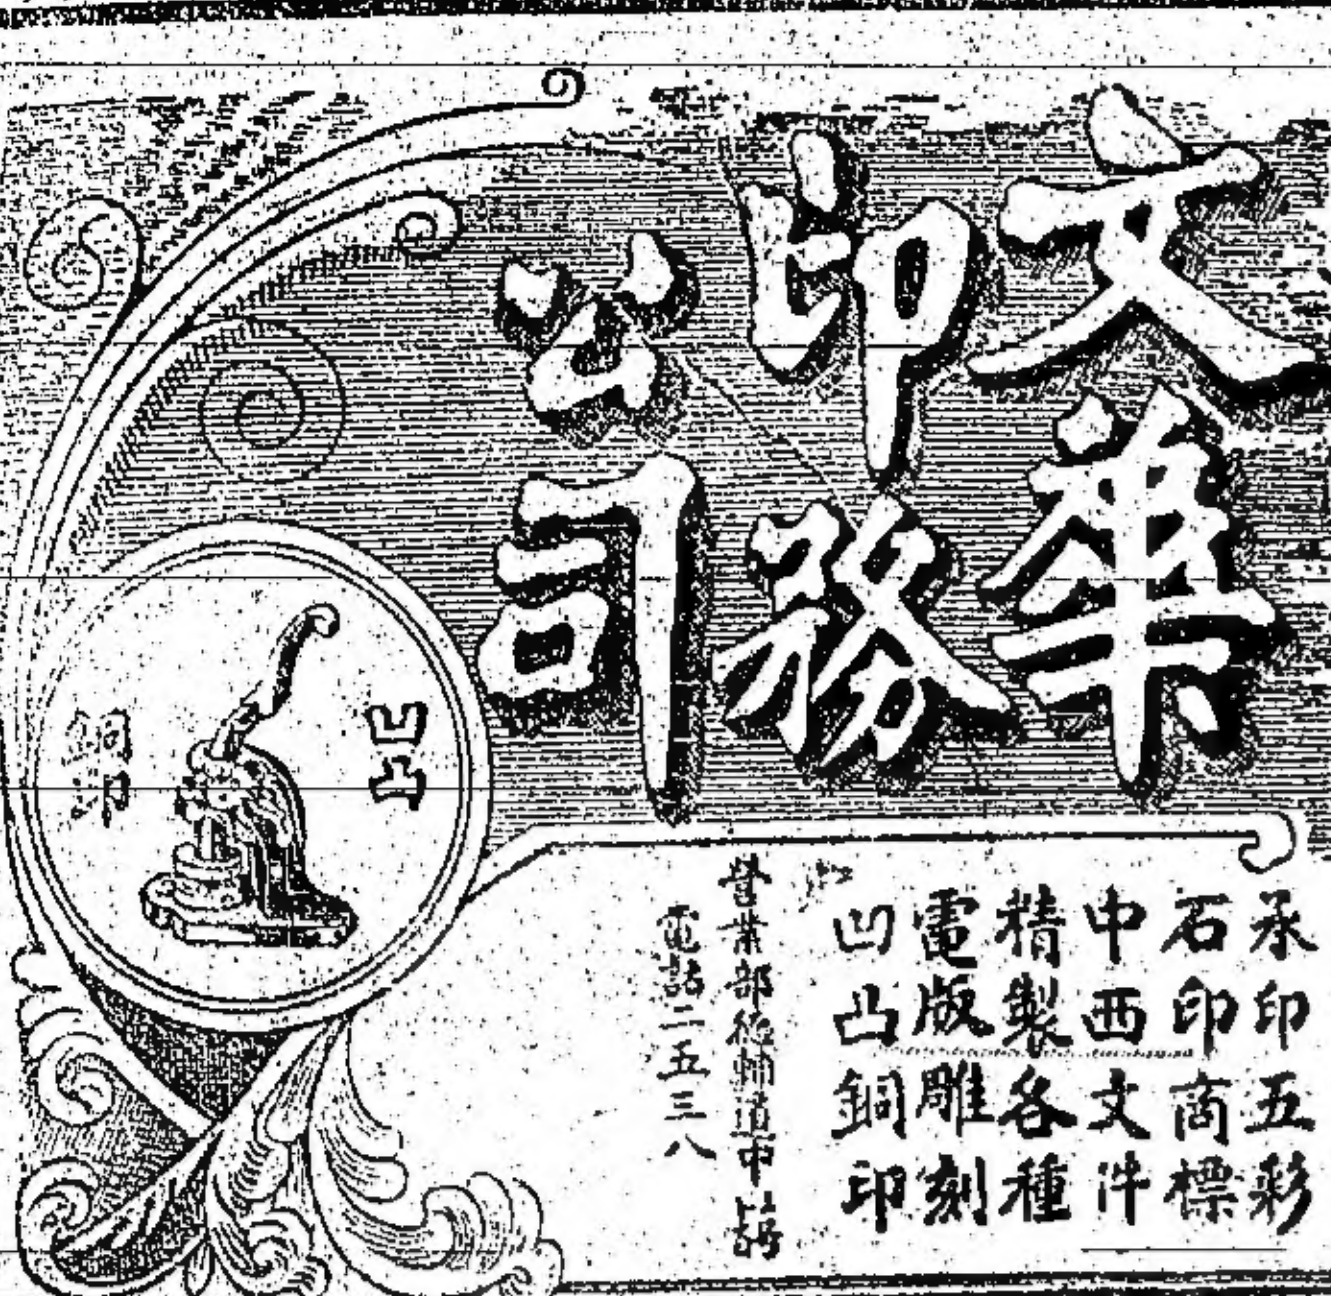 文華
印務
公司
承印五彩
石印商標
中西文件
精製各種
電版雕刻
凹凸銅印
營業部德輔道中
電話二五三八
凹凸